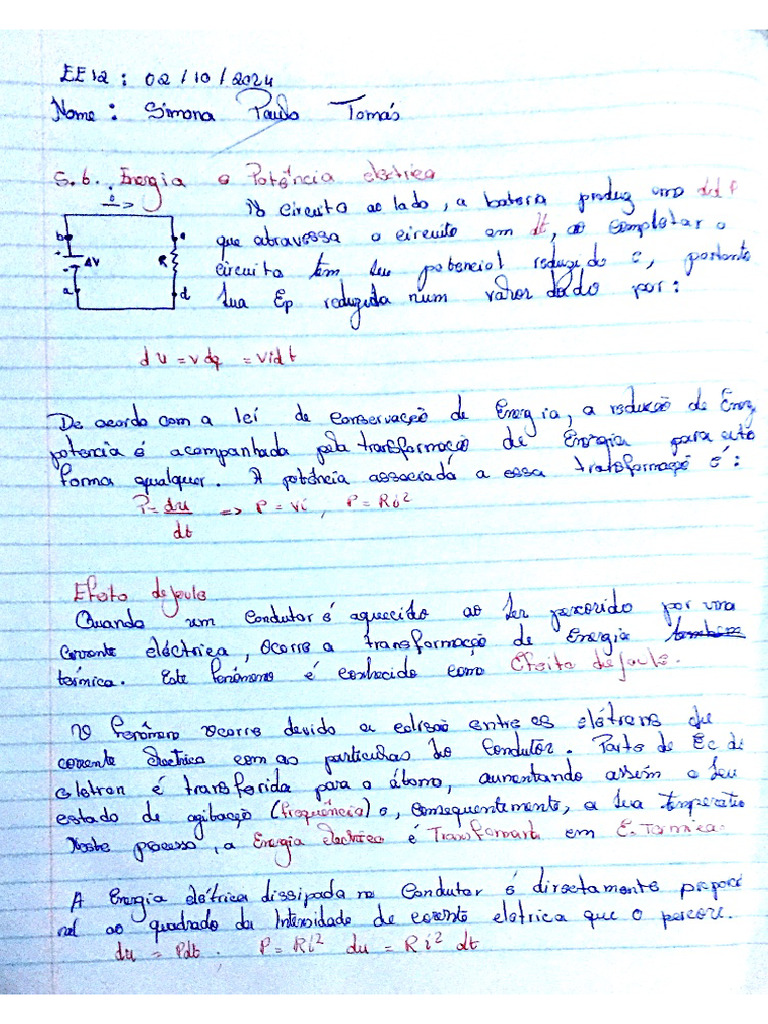 EE12 : 02/10/2024
Nome : Simona Paulo Tomás
5.6. Energia e Potência eléctrica
i
No circuito ao lado, a bateria produz uma dd P
que atravessa o circuito em dt, ao completar o
circuito tem seu potencial reduzido e, portanto
sua Ep reduzida num valor dado por :
b c
4V R
a d
du = vdq = vidt
De acordo com a leí de conservação de Energia, a redução de Energ
potencia é acompanhada pela transformação de Energia para
forma qualquer. A potência associadá a essa transformação é :
P = du/dt => P = vi, P = Ri²
Efeito de joule
Quando um condutor é aquecido ao ser percorido por uma
corrente eléctrica, ocorre a transformação de Energia
térmica. Este fenómeno é conhecido como Efeito de joule.
O fenômeno ocorre devido a colisão entre os elétrons da
corrente electrica com as particulas do Condutor. Parte de Ec do
eletron é transferida para o átomo, aumentando assim o seu
estado de agitação (frequência) e, consequentemente, a sua temperatu
Neste processo, a Energia electrica é Transformada em E. Termica.
A Energia elétrica dissipada no Condutor é directamente proporci
nal ao quadrado da Intensidade de corente eletrica que o percore.
du = Pdt. P = Ri² du = Ri² dt